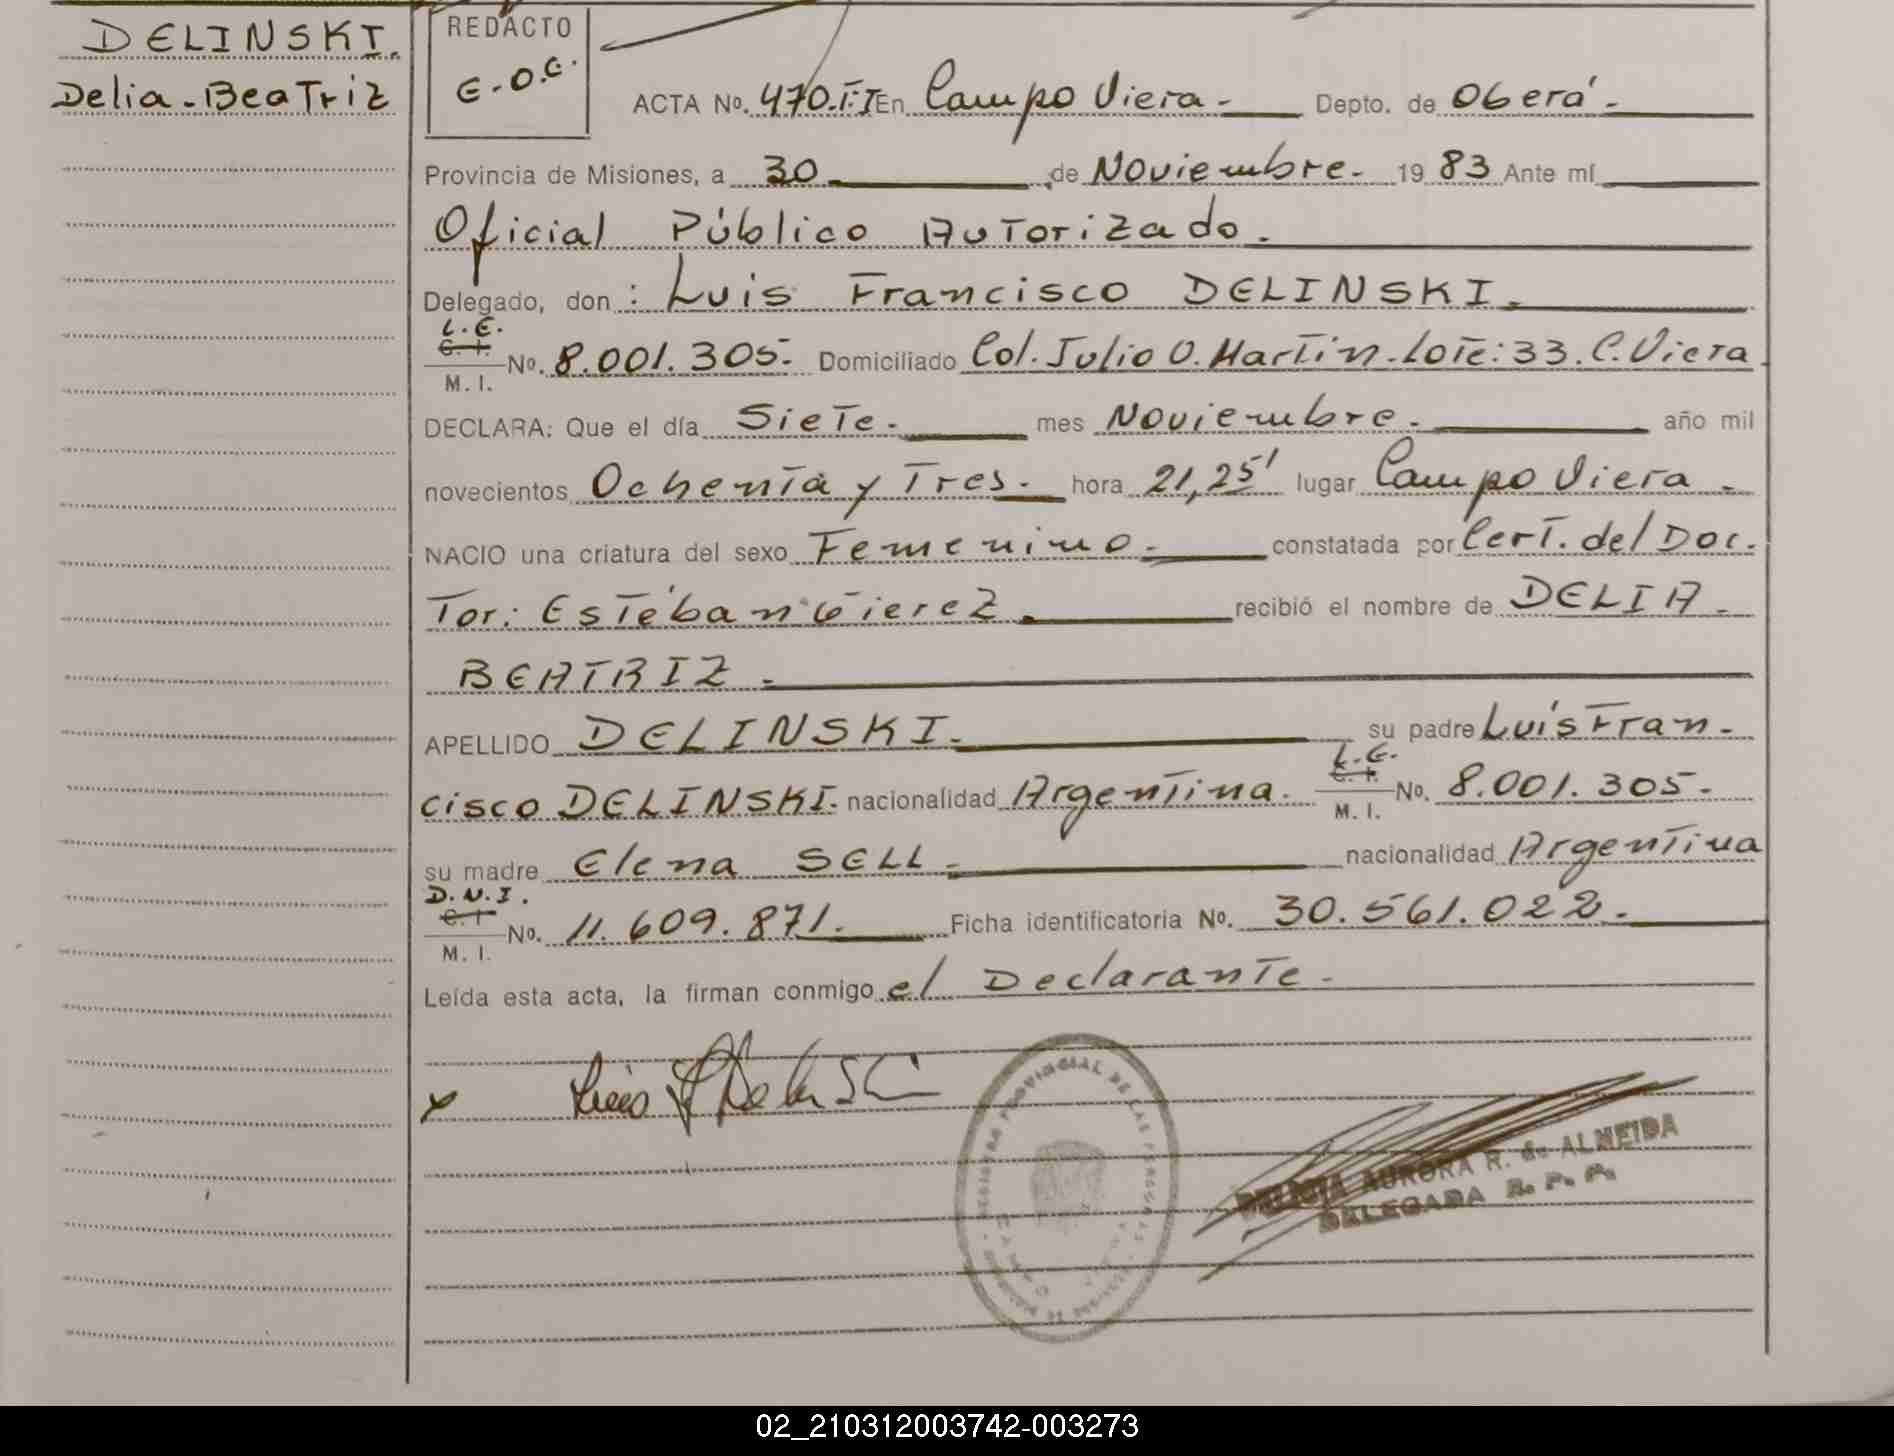 DELINSKI.
Delia-Beatriz
REDACTO
E.O.C.
ACTA No. 470.T:I En Campo Viera.- Depto. de Oberá.-
Provincia de Misiones, a 30 de Noviembre.- 19 83 Ante mí
Oficial Público Autorizado.
Delegado, don: Luis Francisco DELINSKI.
L.E.
C.I.
M.I. No. 8.001.305.- Domiciliado Col. Julio U. Martin.Lote:33.C.Viera.
DECLARA: Que el día Siete.- mes Noviembre.- año mil
novecientos Ochenta y Tres.- hora 21,25' lugar Campo Viera.-
NACIO una criatura del sexo Femenino.- constatada por Cert. del Doc.
Tor: Esteban Gierez.- recibió el nombre de DELIA.-
BEATRIZ.-
APELLIDO DELINSKI.- su padre Luis Fran.-
L.E.
C.I.
cisco DELINSKI. nacionalidad Argentina. M.I. No. 8.001.305.-
su madre Elena SELL.- nacionalidad Argentina
D.N.I.
C.I
M.I. No. 11.609.871.- Ficha identificatoria No. 30.561.022.-
Leída esta acta, la firman conmigo el Declarante.-
x Luis F Delinski
REGISTRO PROVINCIAL DE LAS PERSONAS
AURORA R. de ALMEIDA
DELEGADA R. P. P.
02_210312003742-003273